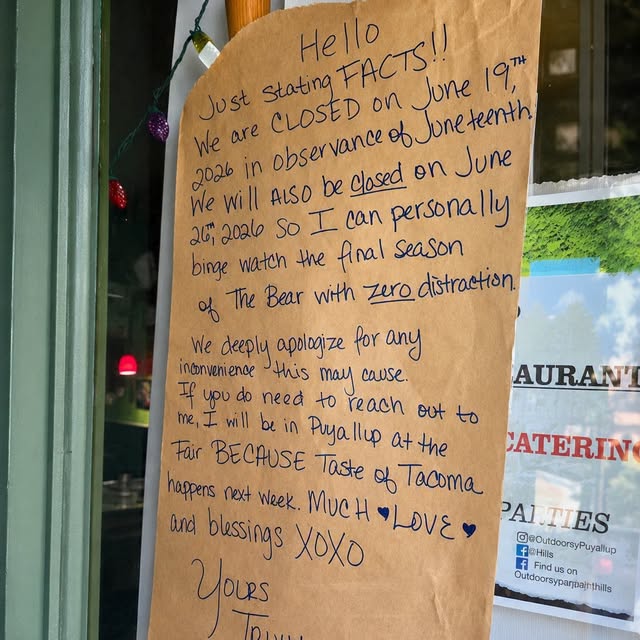 Hello
Just stating FACTS!!
We are CLOSED on June 19TH,
2026 in observance of Juneteenth.
We will ALSO be closed on June
26th, 2026 so I can personally
binge watch the final season
of The Bear with zero distraction.
We deeply apologize for any
inconvenience this may cause.
If you do need to reach out to
me, I will be in Puyallup at the
Fair BECAUSE Taste of Tacoma
happens next week. MUCH ♥ LOVE ♥
and blessings XOXO
Yours
AURANT
CATERING
PARTIES
@OutdoorsyPuyallup
@Hills
Find us on